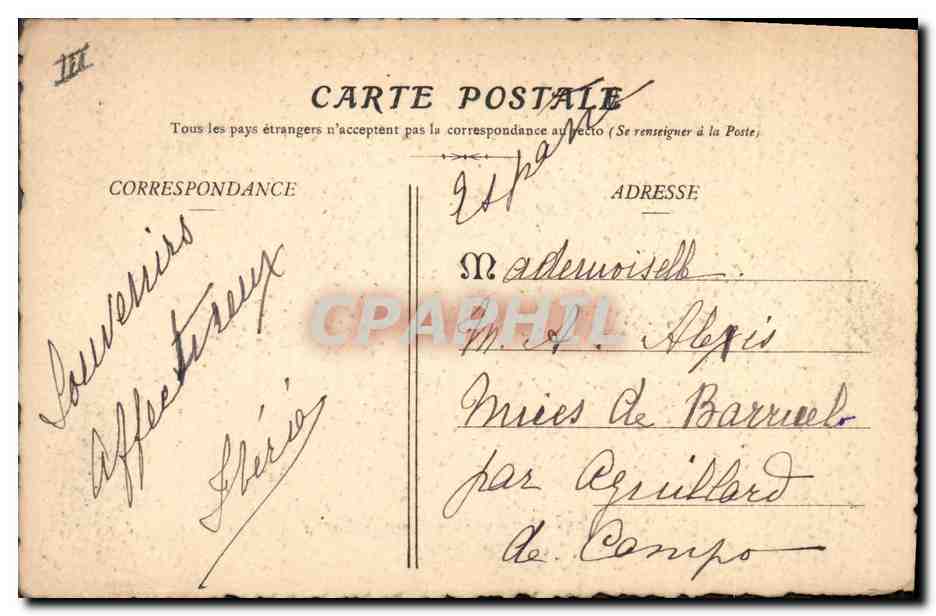 III
CARTE POSTALE
Tous les pays étrangers n'acceptent pas la correspondance au recto (Se renseigner à la Poste)
CORRESPONDANCE
Souvenirs
affectueux
Ibérie
Espagne
ADRESSE
Mademoiselle
M. A. Alexis
Mines de Barruel
par Aguillard
de Campo
CPAPHIL